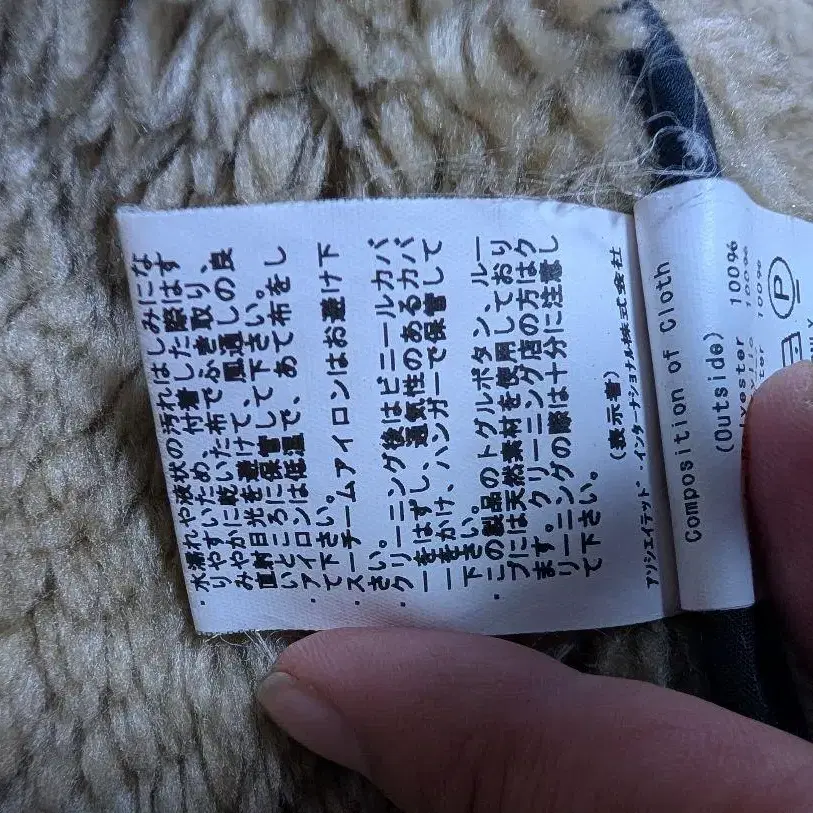 ・水濡れや液状の汚れはしみにな
りやすいため、付着した際はす
みやかに乾いた布でふき取り、
直射日光を避けて、風通しの良
いところに保管して下さい。
・アイロンは低温で、あて布をし
て下さい。
・スチームアイロンはお避け下
さい。
・クリーニング後はビニールカバ
ーをはずし、通気性のあるカバ
ーをかけ、ハンガーで保管して
下さい。
・この製品のトグルボタン、ルー
プには天然素材を使用しており
ます。クリーニング店の方はク
リーニングの際は十分に注意し
て下さい。
(表示者)
アソシエイテッド・インターナショナル株式会社
Composition of Cloth
(Outside)
lyester 100%
100%
100%
P